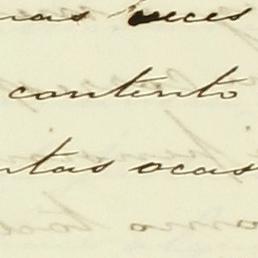 veces
contento
ntas ocas